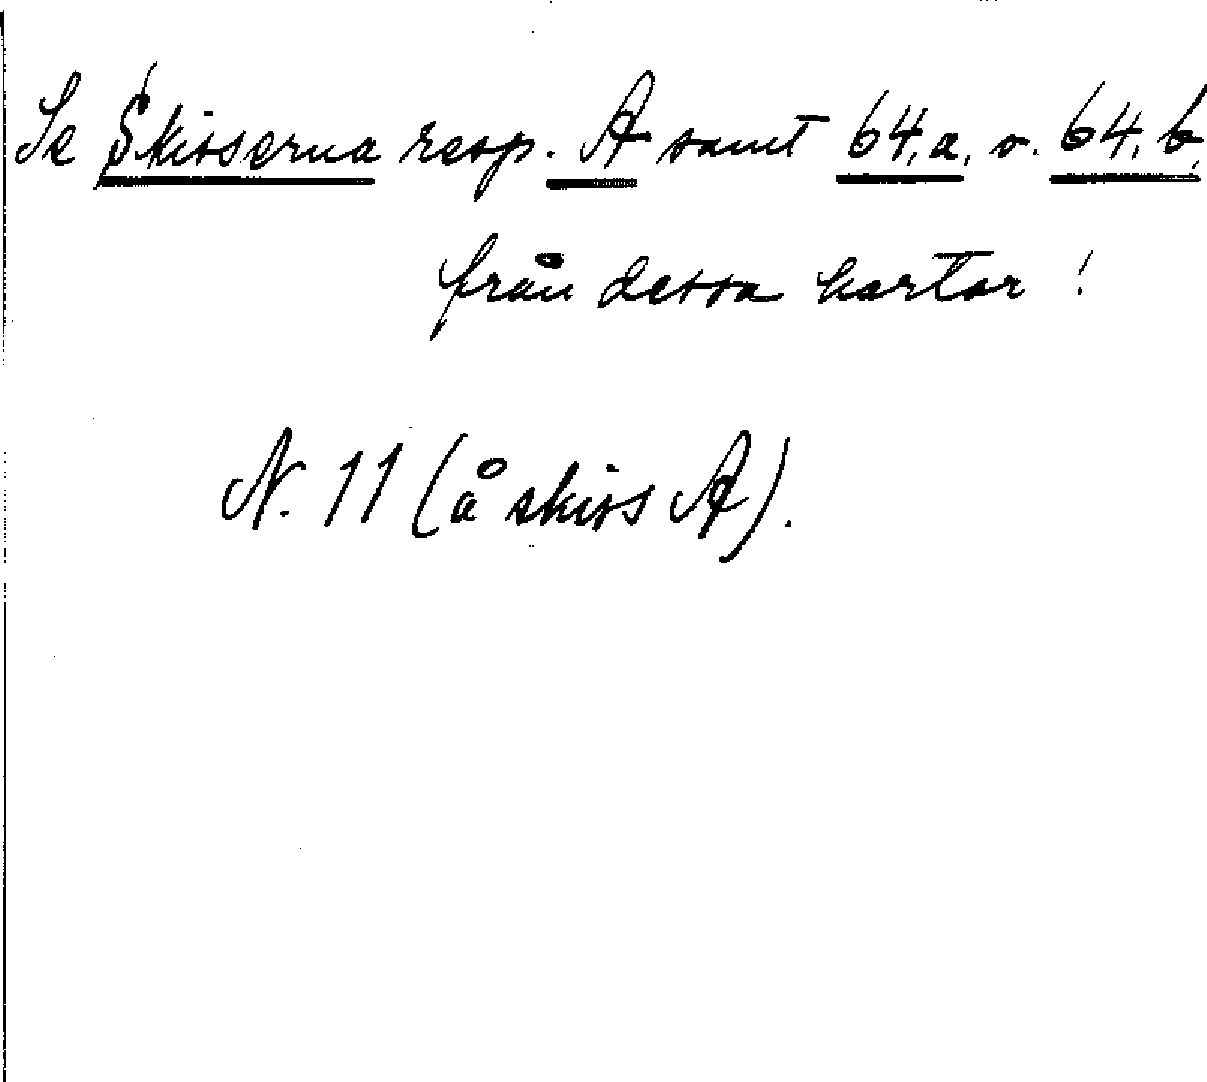 Se Skisserna resp. A samt 64.a. o. 64.b.
från dessa kartor!
N. 11 (å skiss A).